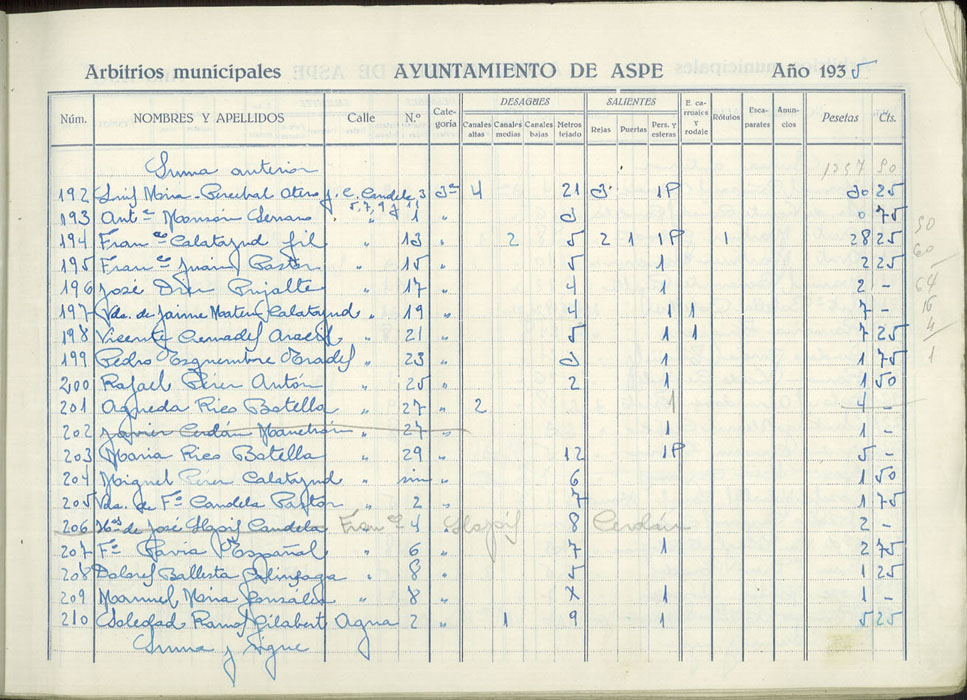 Arbitrios municipales AYUNTAMIENTO DE ASPE Año 1935
DESAGUES SALIENTES
Núm. NOMBRES Y APELLIDOS Calle N.º Categoría Canales altas Canales medias Canales bajas Metros tejado Rejas Puertas Pers. y esteras E. carruajes y rodaje Rótulos Escaparates Anuncios Pesetas Cts.
Suma anterior 1257 50
192 Luis Mira-Percebal Otero J. C. Candela 3 3ª 4 21 3 1P 30 25
5, 7, 9 y 11
193 Antº Monsón Serrano " 1 " 3 0 75
194 Franco Calatayud Gil " 13 " 2 5 2 1 1P 1 28 25
195 Franco Juan Pastor " 15 " 5 1 2 25
196 José Pujalte " 17 " 4 1 2 -
197 Vda. de Jaime Mateu Calatayud " 19 " 4 1 1 7 -
198 Vicente Cremades " 21 " 5 1 1 7 25
199 Pedro " 23 " 3 1 1 75
200 Rafael Pérez Antón " 25 " 2 1 1 50
201 Agueda Rico Botella " 27 " 2 1 4 -
202 Javier Cerdán " 27 " 1 1 -
203 Maria Rico Botella " 29 " 12 1P 5 -
204 Miguel Pérez Calatayud " s/n " 6 1 50
205 Vda. de Fº Candela Pastor " 2 " 7 1 75
206 Hos de José Candela Franco 4 8 Cerdán 2 -
207 Fº Pavia Español " 6 " 7 1 2 75
208 Dolores Ballesta " 8 " 5 1 25
209 Manuel Mira González " 8 " X 1 1 -
210 Soledad Ramos Gilabert Agua 2 " 1 9 1 5 25
Suma y sigue
50
60
64
16
4
1